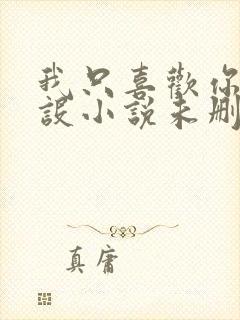 我只喜歡你
設小說未刪
真庸